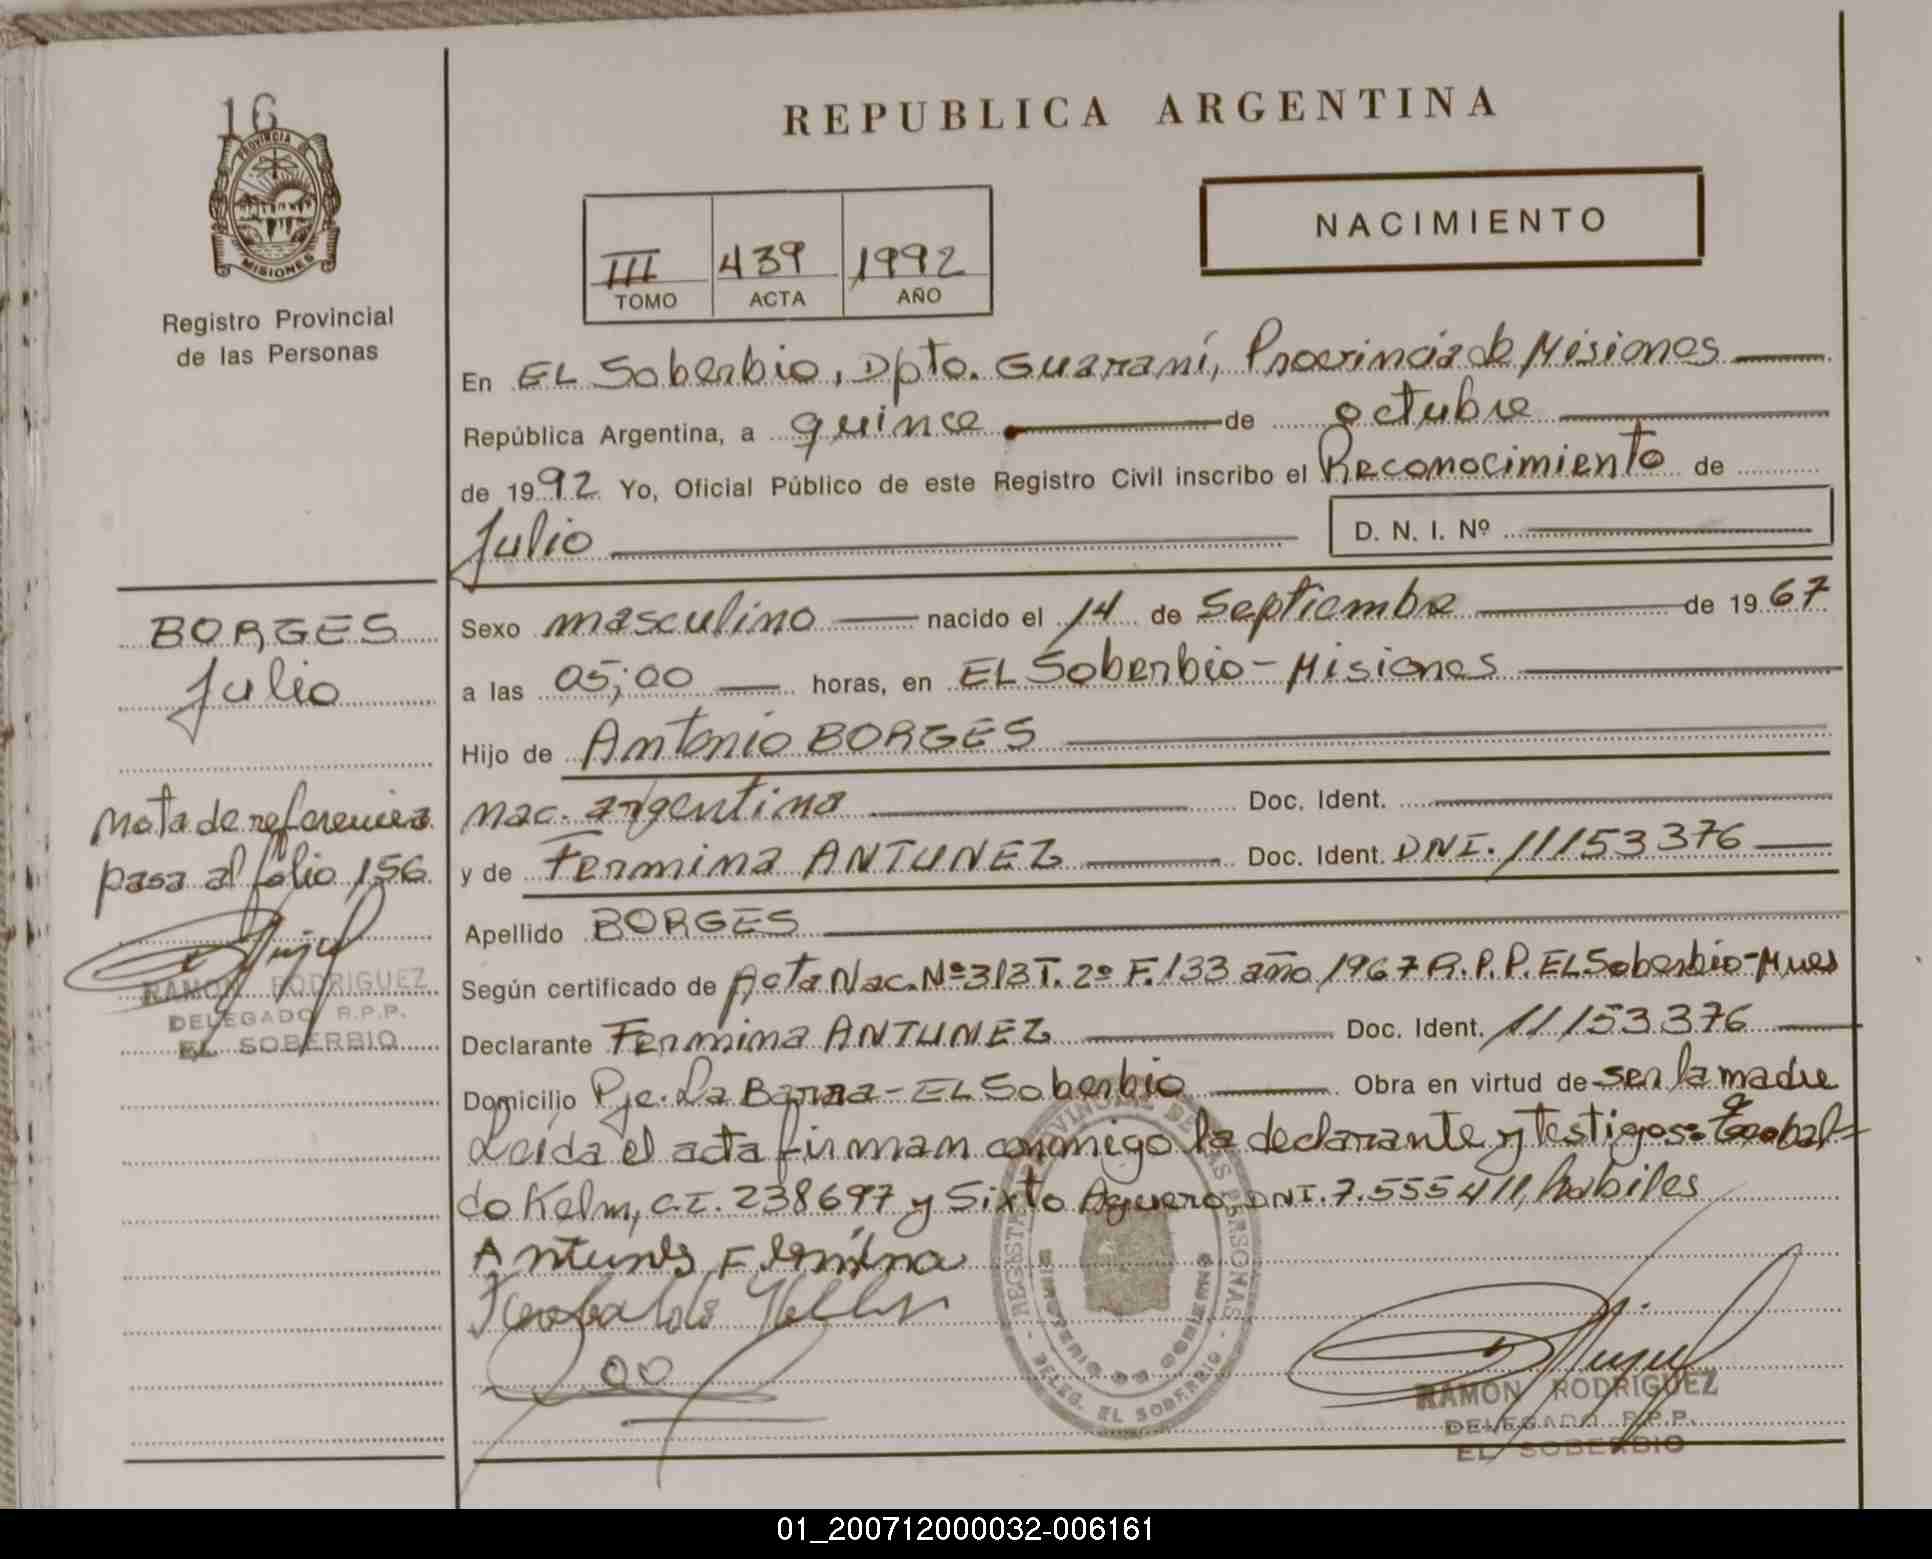 16
PROVINCIA DE
MISIONES
Registro Provincial
de las Personas
BORGES
Julio
Nota de referencia
pasa al folio 156
RAMON RODRIGUEZ
DELEGADO R.P.P.
EL SOBERBIO
REPUBLICA ARGENTINA
NACIMIENTO
III 439 1992
TOMO ACTA AÑO
En EL Soberbio, Dpto. Guaraní, Provincia de Misiones
República Argentina, a quince de octubre
de 1992 Yo, Oficial Público de este Registro Civil inscribo el Reconocimiento de
Julio D. N. I. Nº
Sexo masculino nacido el 14 de Septiembre de 1967
a las 05;00 horas, en EL Soberbio - Misiones
Hijo de Antonio BORGES
nac. argentina Doc. Ident.
y de Fermina ANTUNEZ Doc. Ident. DNI. 11153376
Apellido BORGES
Según certificado de Acta Nac. Nº 313 T. 2º F. 133 año 1967 R.P.P. EL Soberbio-Mnes
Declarante Fermina ANTUNEZ Doc. Ident. 11153376
Domicilio Pje. La Barra - EL Soberbio Obra en virtud de ser la madre
Leída el acta firman conmigo la declarante y testigos: Teobal-
do Kelm, C.I. 238697 y Sixto Aguero DNI. 7.555411, habiles
Antunes
Teobaldo
REGISTRO PROVINCIAL DE LAS PERSONAS
MINISTERIO DE GOBIERNO
DELEG. EL SOBERBIO
RAMON RODRIGUEZ
DELEGADO R.P.P.
EL SOBERBIO
01_200712000032-006161